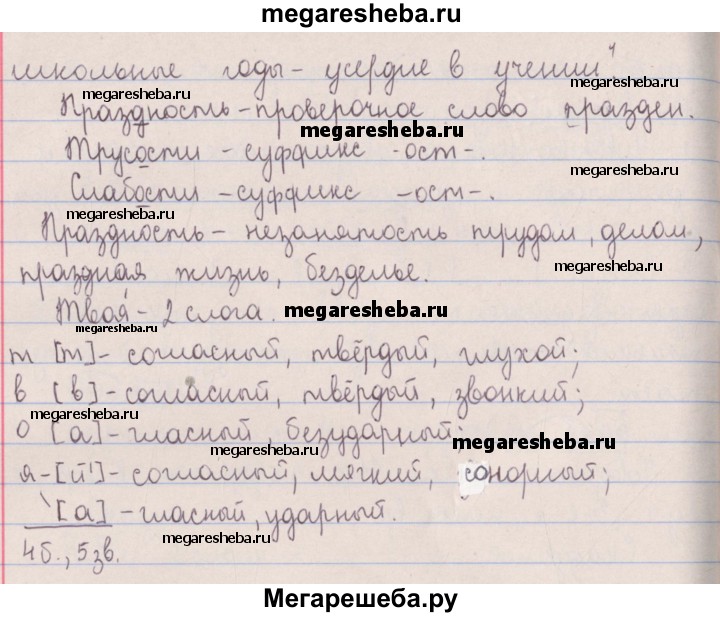 megaresheba.ru
школьные годы - усердие в учении".
megaresheba.ru
Праздность - проверочное слово празден.
megaresheba.ru
megaresheba.ru
Трусости - суффикс -ост-.
megaresheba.ru
Слабости - суффикс -ост-.
megaresheba.ru
Праздность - незанятость трудом, делом,
праздная жизнь, безделье.
megaresheba.ru
Твоя - 2 слога.
megaresheba.ru
megaresheba.ru
т [т] - согласный, твёрдый, глухой;
в [в] - согласный, твёрдый, звонкий;
megaresheba.ru
о [а] - гласный, безударный;
megaresheba.ru
я - [й'] - согласный, мягкий, сонорный;
[а] - гласный, ударный.
megaresheba.ru
4 б., 5 зв.
Мегарешеба.ру